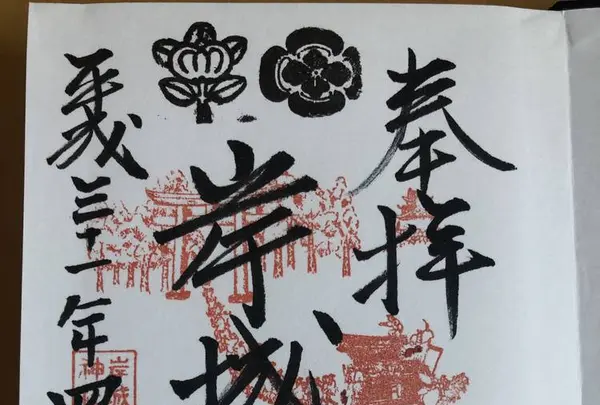 奉拝
岸城
平成三十一年四
岸城
神